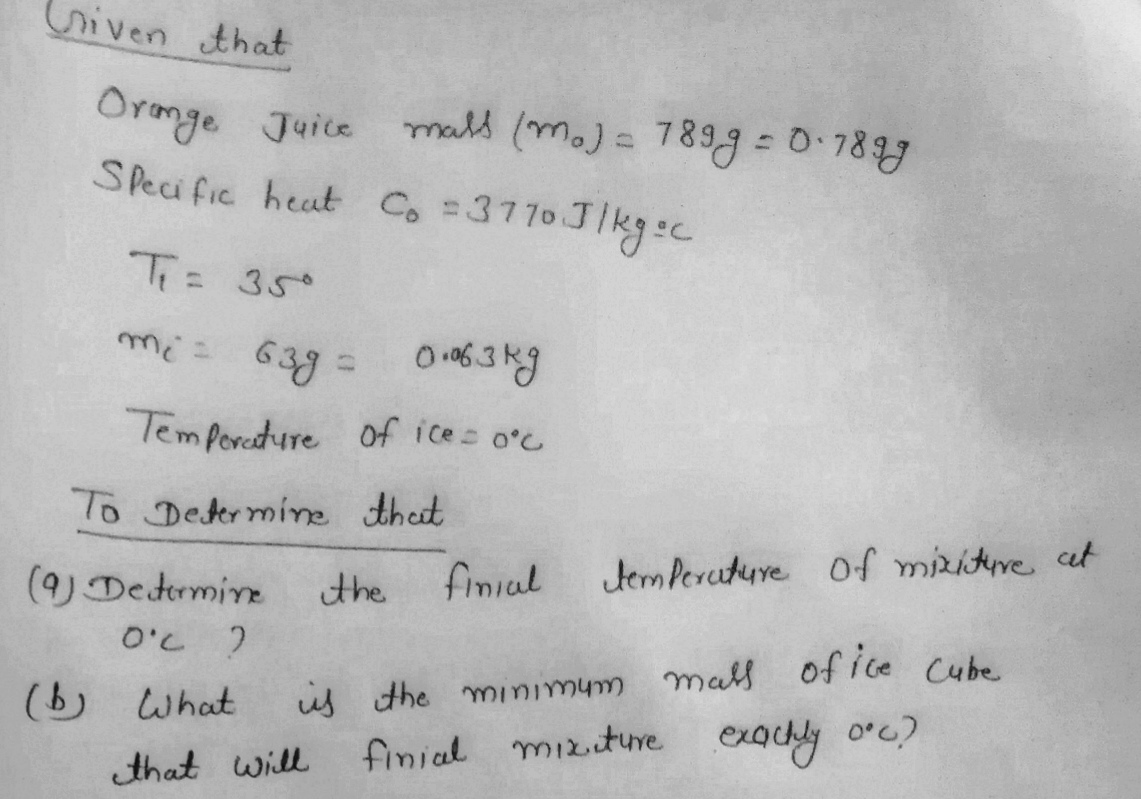 Given that
Orange Juice mass (m₀) = 789g = 0.789g
Specific heat C₀ = 3770 J/kg°C
T₁ = 35°
mi = 63g = 0.063kg
Temperature of ice = 0°C
To Determine that
(a) Determine the finial temperature of mixiture at
0°C ?
(b) What is the minimum mass of ice cube
that will finial mixture exactly 0°C?